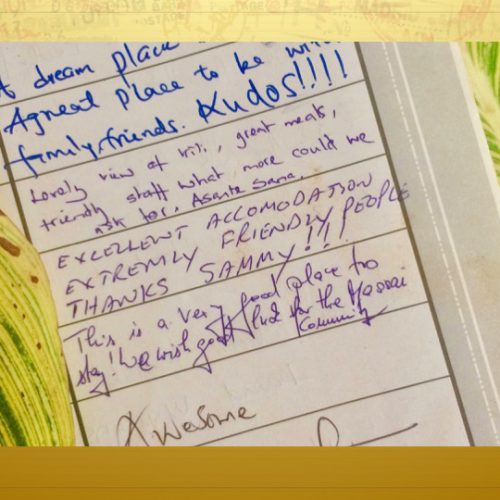 A dream place
A great place to be with
family, friends. Kudos!!!!
Lovely view of Kili, great meals,
friendly staff what more could we
ask for. Asante Sana.
EXCELLENT ACCOMODATION
EXTREMLY FRIENDLY PEOPLE
THANKS SAMMY!!!
This is a very good place to
stay! We wish good luck for the Massai
Community
Awesome